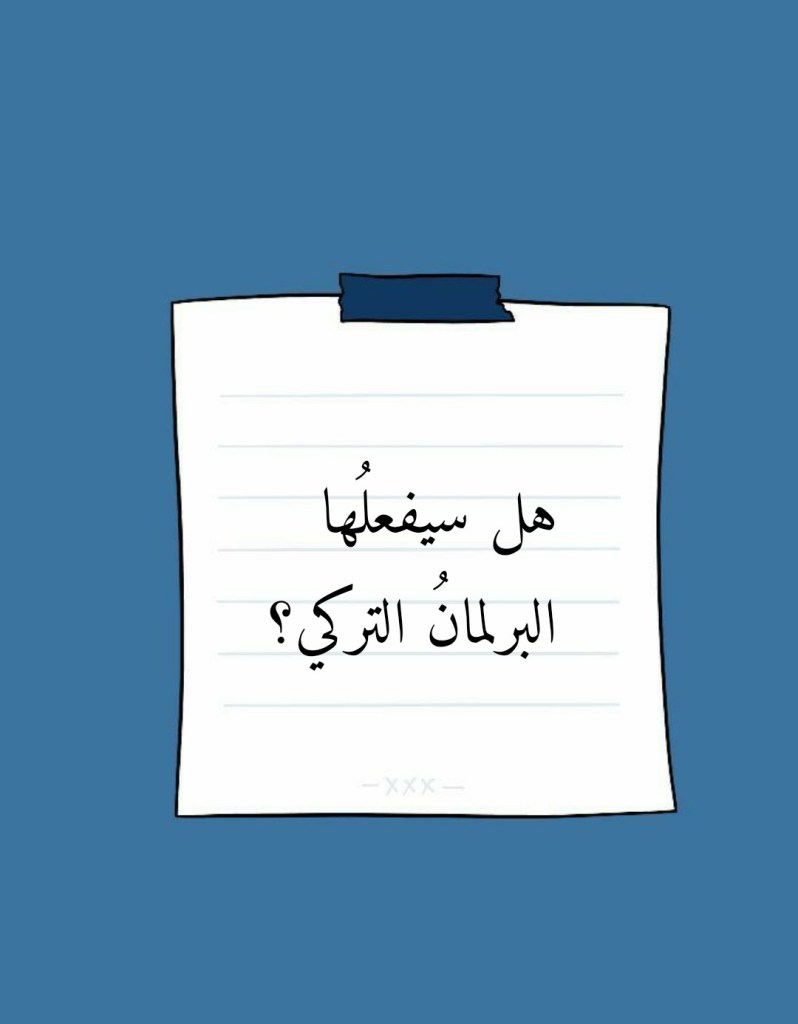 هل سيفعلُها
البرلمانُ التركي؟
–xxx–